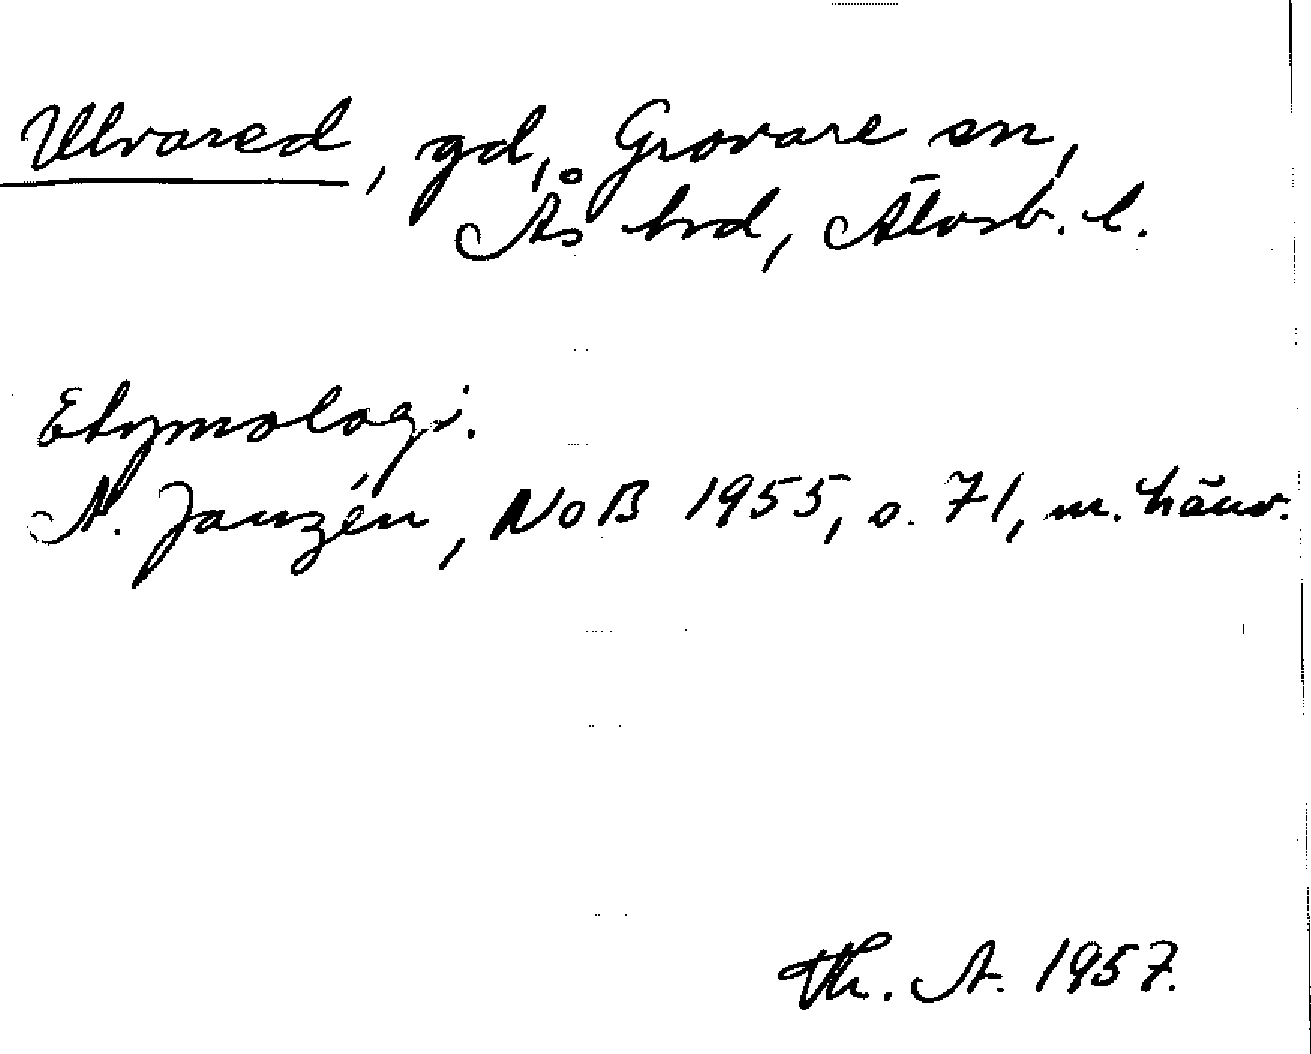 Ulvared, gd, Grovare sn,
Ås hrd, Älvsb. l.
Etymologi.
A. Janzén, NoB 1955, s. 71, m. hänv.
Th. A. 1957.